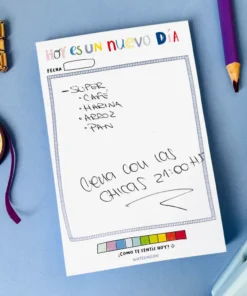 HOY ES UN NUEVO DÍA
FECHA
- SUPER
• CAFÉ
• HARINA
• ARROZ
• PAN
Cena con las
chicas 21:00 H
¿CÓMO TE SENTÍS HOY?